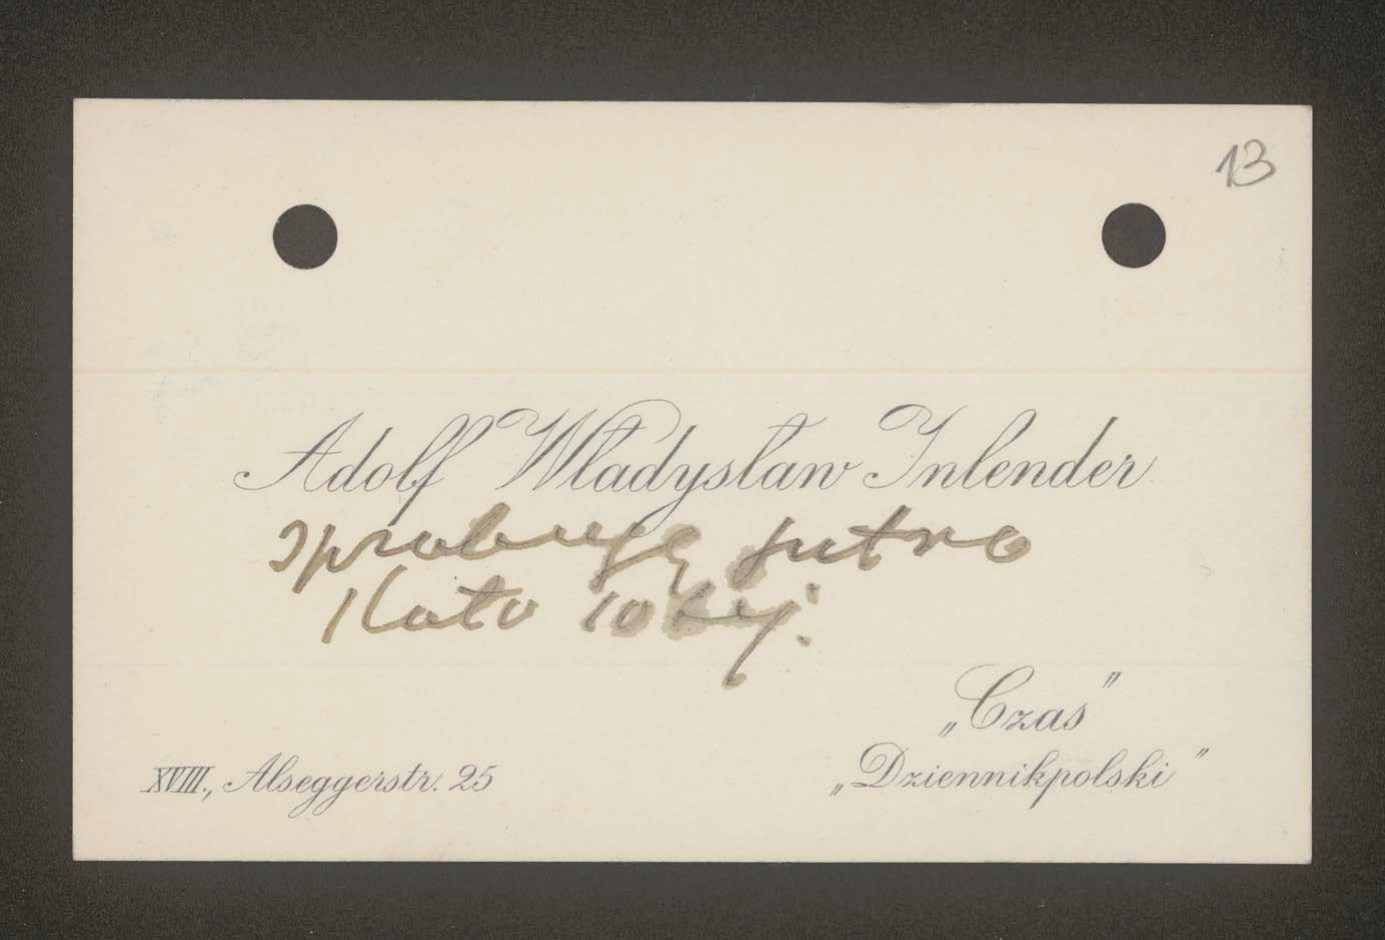 13
Adolf Władysław Inlender
sprobuję jutro
koło 10 tej.
„Czas"
„Dziennikpolski"
XVIII., Alseggerstr. 25